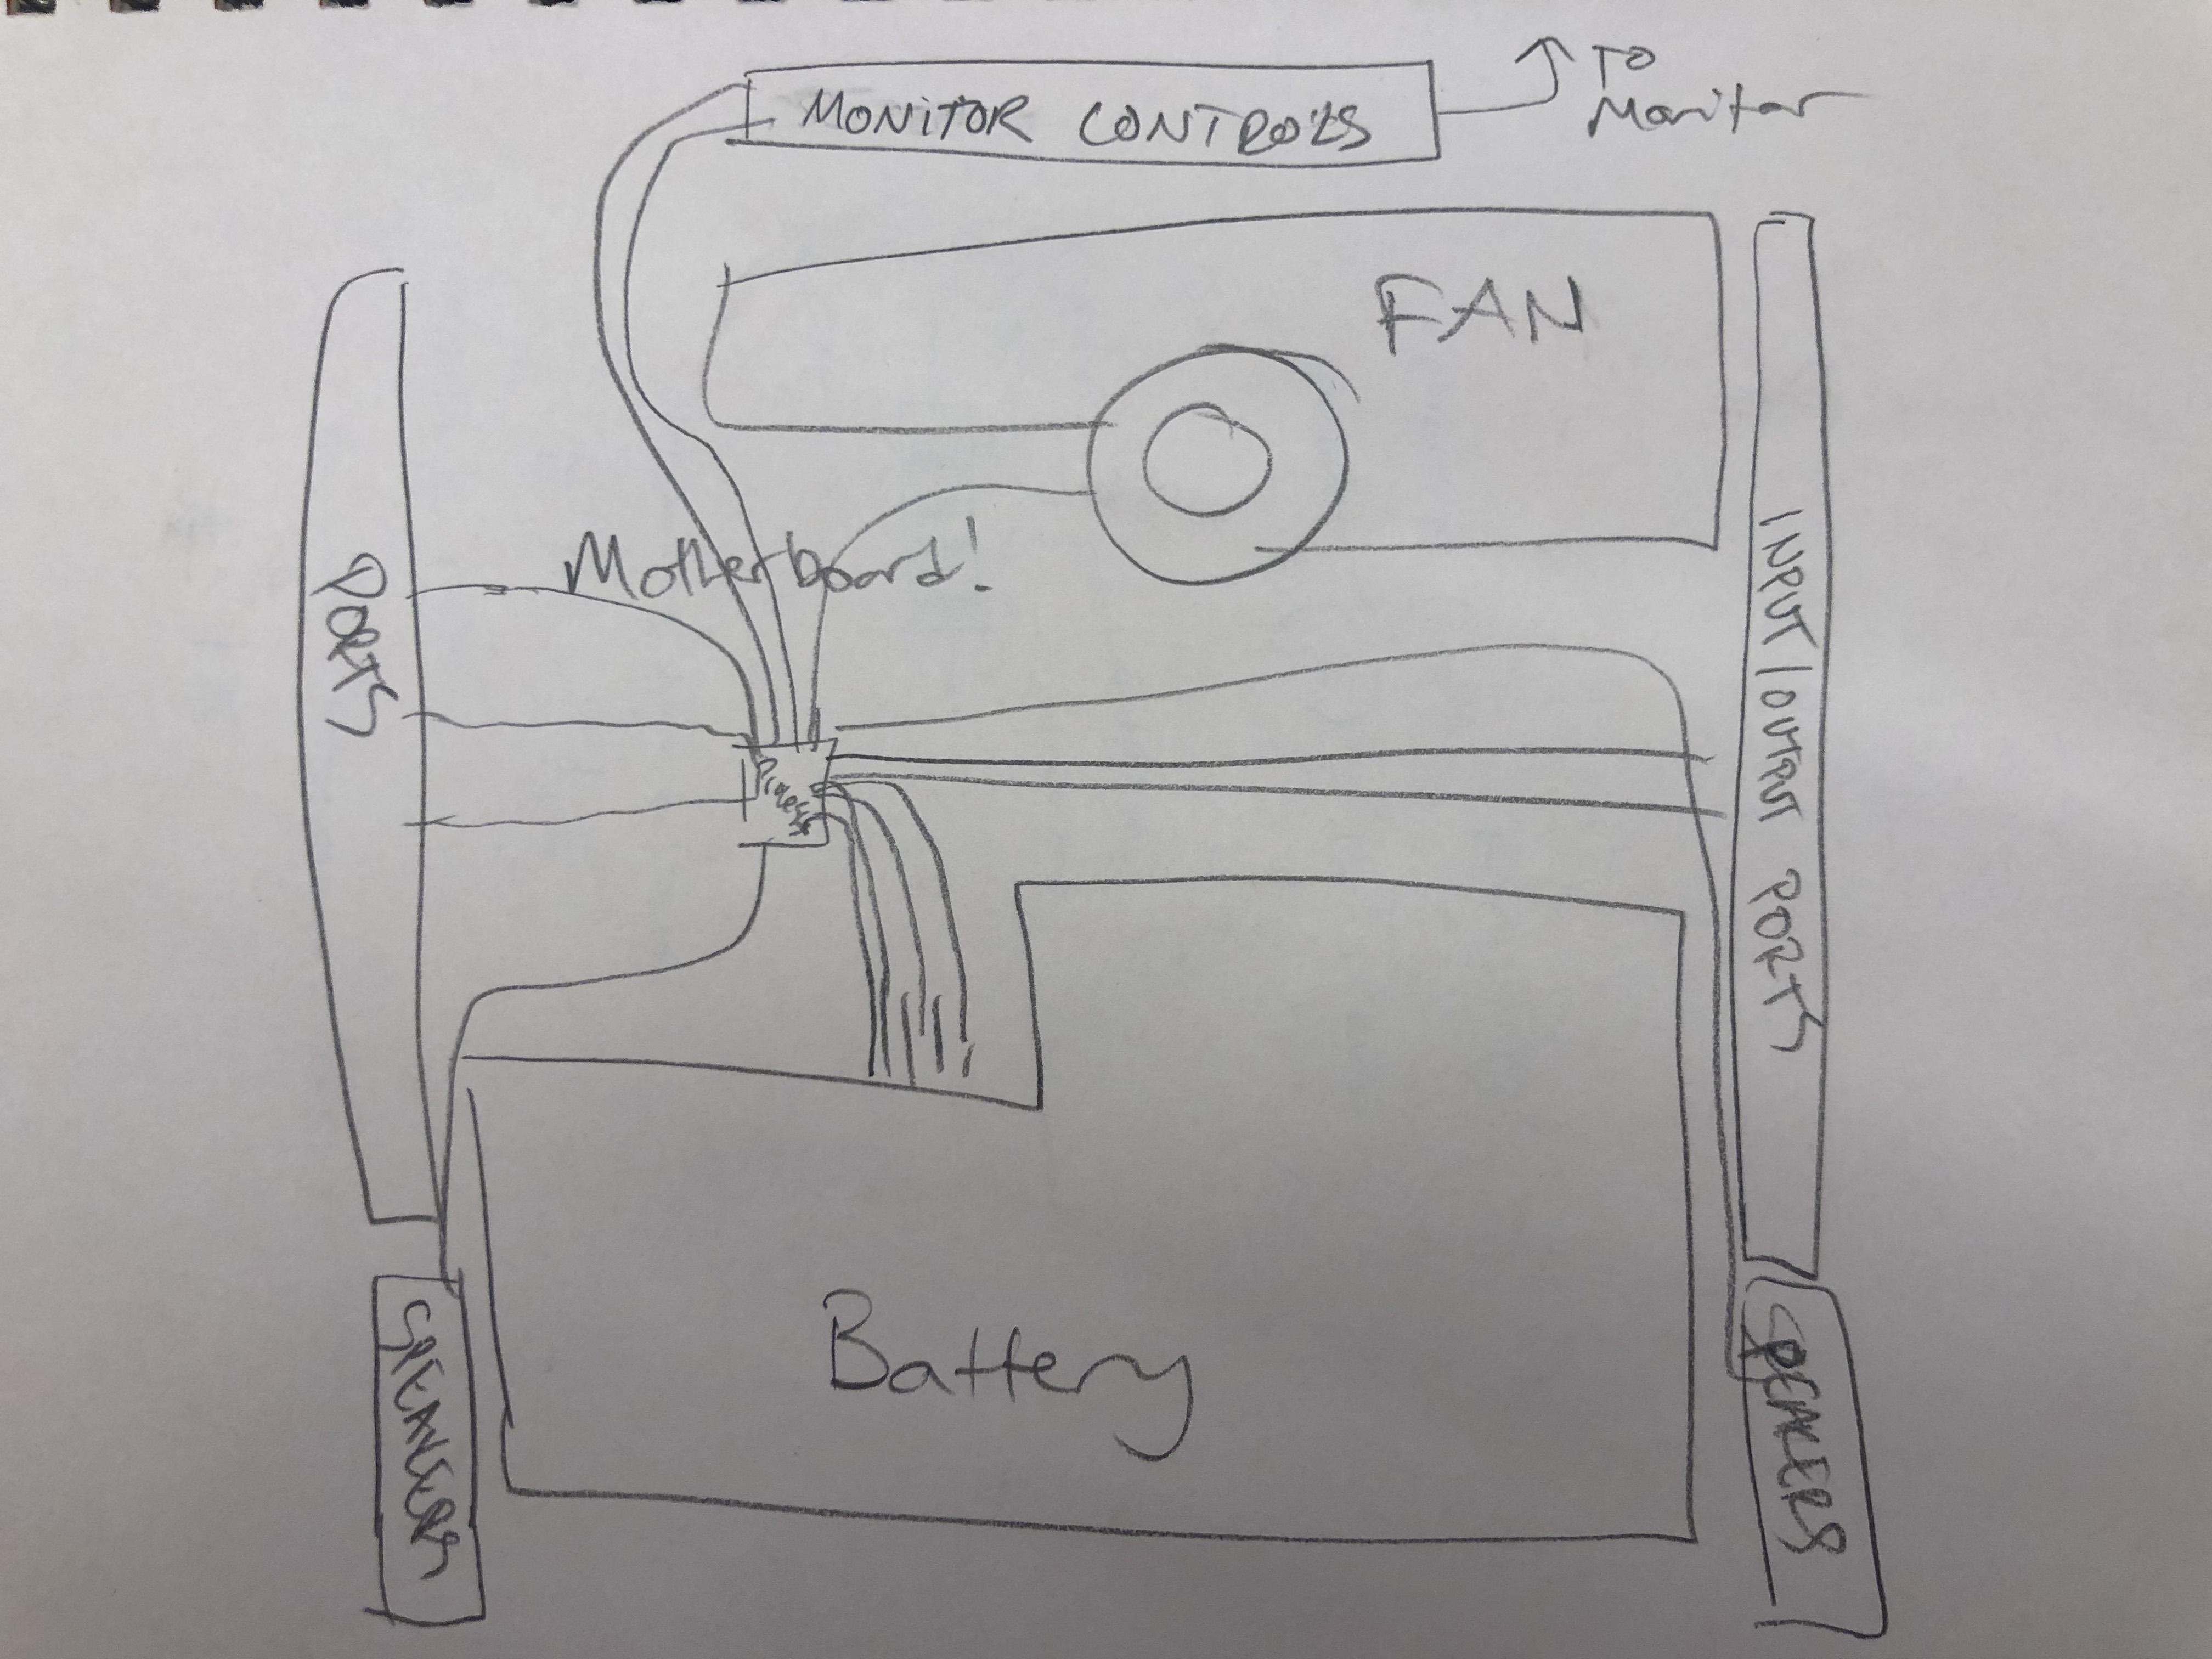 MONITOR CONTROLS
TO
Monitor
FAN
Motherboard!
PORTS
INPUT/OUTPUT PORTS
Battery
SPEAKERS
SPEAKERS